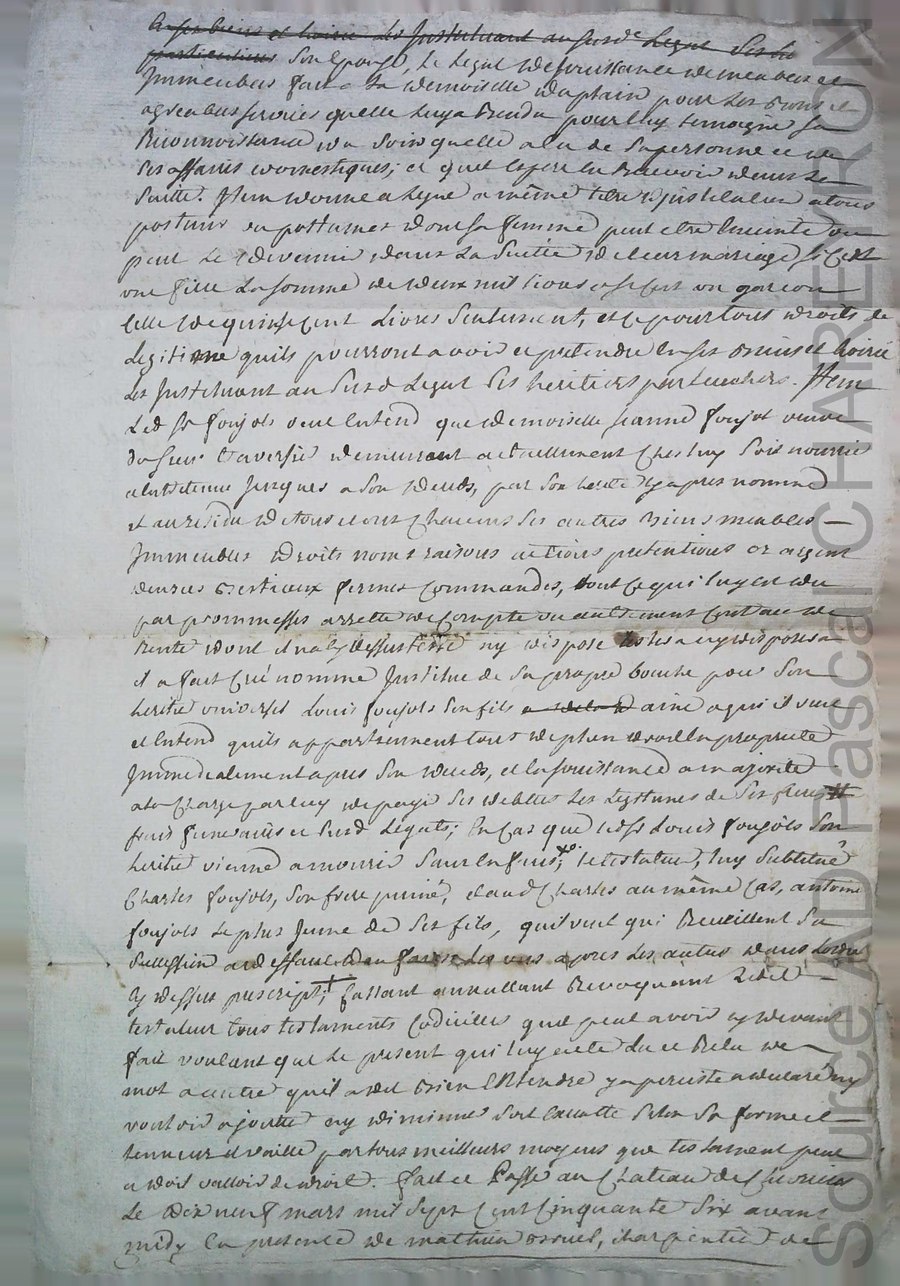 en ses biens et hoirie les Instituant au susd. Legat ses h
particuliers son Epouse, le Legat de jouissance de meubles et
Immeubles fait a la demoiselle pour les bons et
agreables services quelle luy a Rendu pour luy temoigné sa
Reconnoissance du soin quelle a eu de sa personne et de
ses affaires domestiques; et quel espere en Recevoir dans la
suitte. Item donne a legué a même titre d'institution a tous
postums ou posthumes dont sa femme peut etre Enceinte ou
peut le devenir dans la suitte de leur mariage si cest
une fille la somme de deux mil livres et si cest un garcon
celle de quinse cent Livres seulement, et ce pour tous droits de
Legitime quils pourront avoir et pretendre en ses biens et hoirie
les Instituant au susd Legat ses heritiers particuliers. Item
Led Sr foujols veut Entend que demoiselle jeanne foujol veuve
du sieur demeurant actuellement ches luy soit nourrie
et entretenue jusques a son deceds, par son herité cy apres nommé
et au residu de tous et uns chacuns ses autres Biens meubles
Immeubles droits noms raisons actions pretentions or argent
denrées bestiaux fermes commandes, tout ce qui luy est du
par prommesses arretté de compte ou autrement contract de
rente dont il na cy dessus testé ny disposé
il a fait créé nommé Institué de sa propre bouche pour son
herité universel Louis foujols son fils ainé a qui il veut
et Entend quils appartiennent tout de plein droit en propriete
Immediatement apres son deceds, et en jouissance a majorité
a la charge par luy de payé ses debtes les legitimes de ses freres
frais funeraires et susd Legats; En cas que led Sr Louis foujols son
herité vienne a mourir sans enfans, le testateur, luy substitué
Charles foujols, son frere puiné, et aud Charles au même cas, antoine
foujols le plus jeune de ses fils, quil veut qui Recueillent sa
succession a deffaut dans les uns apres les autres dans lordre
cy dessus prescript; cassant annullant Revocquant Ledit
testateur tous testaments codicilles quil peut avoir cy devant
fait voulant que le present qui luy a été Lu et Relu de
mot a autre quil a dit bien Entendre y a persisté a declaré ny
vouloir ajoutté ny diminué soit Executté selon sa forme et
tenneur et vaille par tous meilleurs moyens que testament peut
et doit valloir de droit. fait et Passé au Chateau de
le dix neuf mars mil sept cent cinquante six avant
midy En presence de mathieu charpentier de
Source AD Pascal CHAREYRON